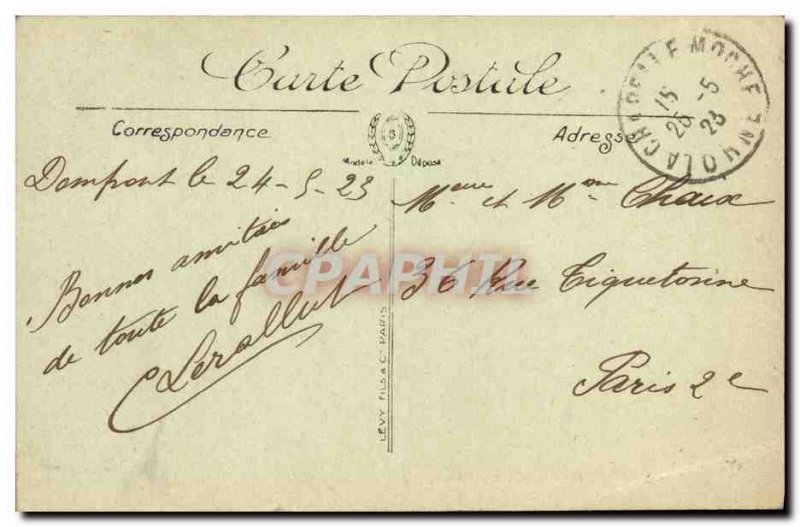 Carte Postale
Correspondance
Adresse
Modèle Déposé
LA CHAPELLE MOCHE
15
26 - 5
23
ORNE
le 24-5-23
Bonnes amitiés
de toute la famille
Mr et Mme Chaux
36 Rue Tiquetonne
Paris 2e
LÉVY FILS & Cie PARIS
CPAPHIL